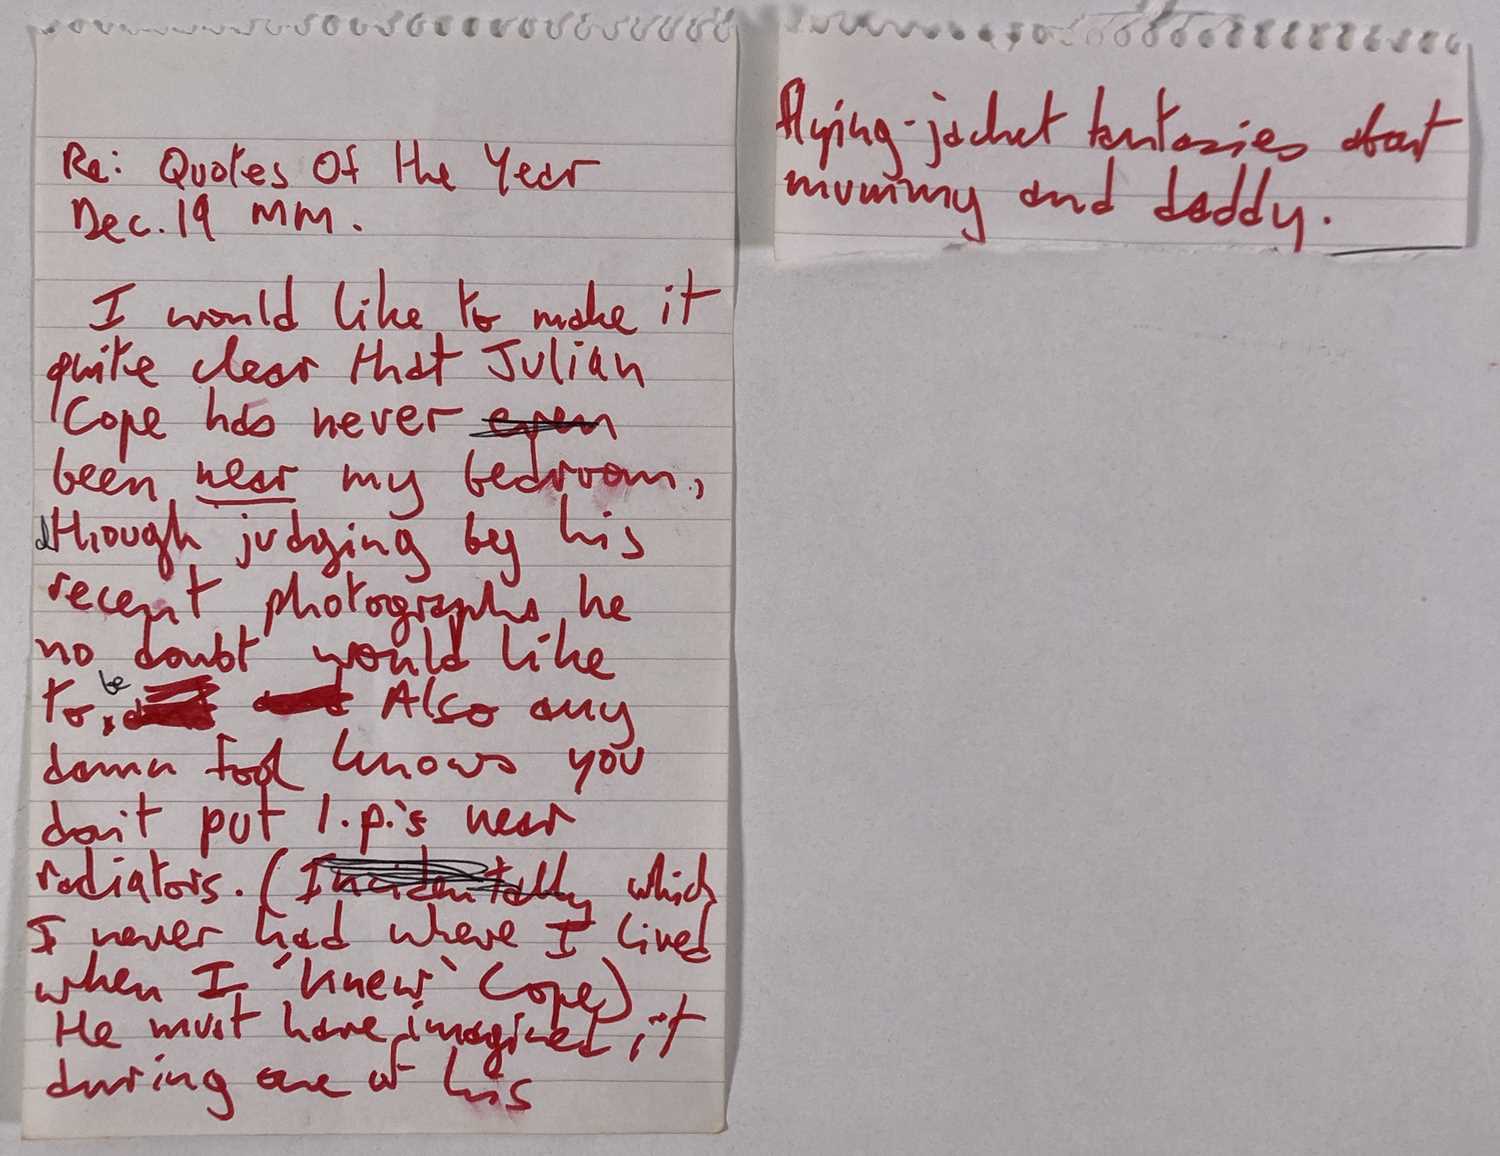 Re: Quotes Of the Year
Dec. 19 MM.
I would like to make it
quite clear that Julian
Cope has never even
been near my bedroom,
although judging by his
recent photographs he
no doubt would like
to be Also any
damn fool knows you
don't put l.p.'s near
radiators. (Incidentally which
I never had where I lived
when I 'knew' Cope)
He must have imagined it
during one of his
flying-jacket fantasies about
mummy and daddy.